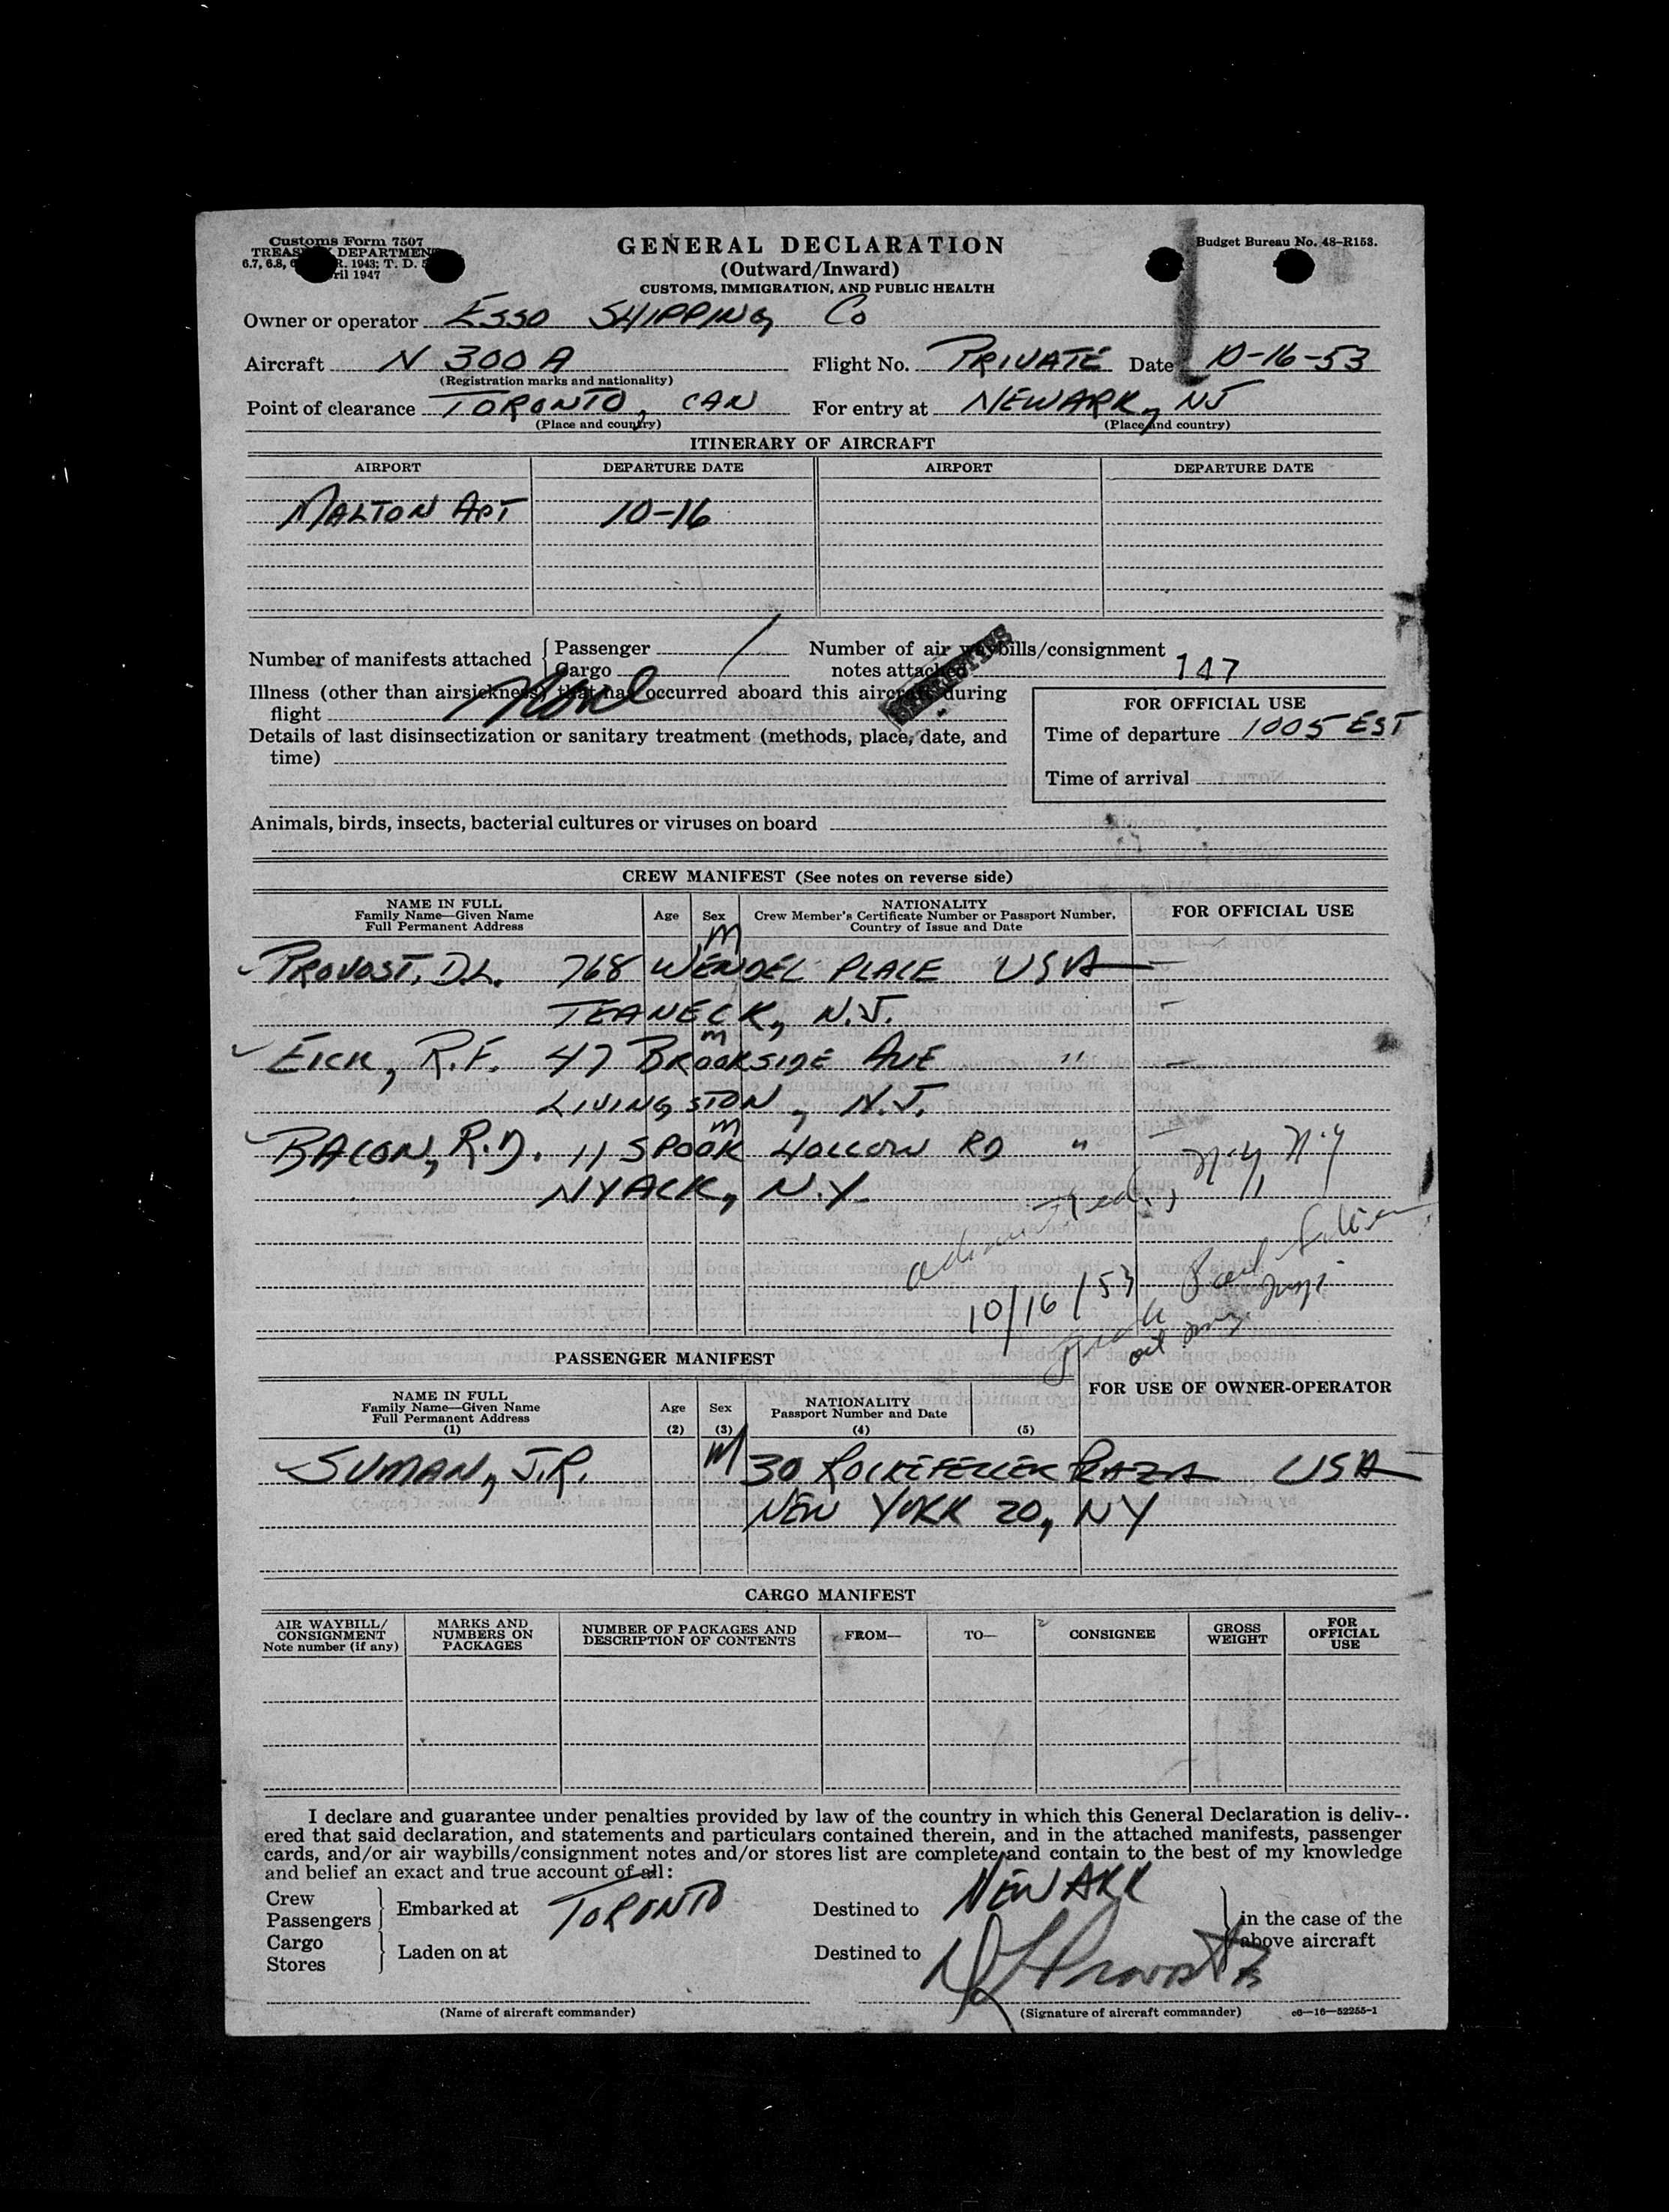 Customs Form 7507
TREAS DEPARTMENT
6.7, 6.8, R. 1943; T. D.
ril 1947
GENERAL DECLARATION
(Outward/Inward)
CUSTOMS, IMMIGRATION, AND PUBLIC HEALTH
Budget Bureau No. 48-R153.
Owner or operator ESSO SHIPPING Co
Aircraft N 300A Flight No. PRIVATE Date 10-16-53
(Registration marks and nationality)
Point of clearance TORONTO, CAN For entry at NEWARK, NJ
(Place and country) (Place and country)
ITINERARY OF AIRCRAFT
AIRPORT DEPARTURE DATE AIRPORT DEPARTURE DATE
MALTON APT 10-16
Number of manifests attached { Passenger 1 Number of air waybills/consignment
Cargo notes attached 147
Illness (other than airsickness) that has occurred aboard this aircraft during
flight None
FOR OFFICIAL USE
Details of last disinsectization or sanitary treatment (methods, place, date, and
time)
Time of departure 1005 EST
Time of arrival
Animals, birds, insects, bacterial cultures or viruses on board
CREW MANIFEST (See notes on reverse side)
NAME IN FULL
Family Name—Given Name
Full Permanent Address
Age Sex
NATIONALITY
Crew Member's Certificate Number or Passport Number,
Country of Issue and Date
FOR OFFICIAL USE
M
PROVOST, D.L. 768 WENDEL PLACE USA —
TEANECK, N.J. -
m
EICK, R.F. 47 BROOKSIDE AVE " —
LIVINGSTON, N.J.
m
BACON, R.D. 11 SPOOK HOLLOW RD " —
NYACK, N.Y. N.Y, N.Y
10/16/53
PASSENGER MANIFEST
NAME IN FULL
Family Name—Given Name
Full Permanent Address
(1)
Age
(2)
Sex
(3)
NATIONALITY
Passport Number and Date
(4) (5)
FOR USE OF OWNER-OPERATOR
SUMAN, J.R. M 30 ROCKEFELLER PLAZA USA
NEW YORK 20, NY
CARGO MANIFEST
AIR WAYBILL/
CONSIGNMENT
Note number (if any)
MARKS AND
NUMBERS ON
PACKAGES
NUMBER OF PACKAGES AND
DESCRIPTION OF CONTENTS
FROM— TO— CONSIGNEE
GROSS
WEIGHT
FOR
OFFICIAL
USE
I declare and guarantee under penalties provided by law of the country in which this General Declaration is deliv-
ered that said declaration, and statements and particulars contained therein, and in the attached manifests, passenger
cards, and/or air waybills/consignment notes and/or stores list are complete and contain to the best of my knowledge
and belief an exact and true account of all:
Crew
Passengers } Embarked at TORONTO Destined to NEWARK } in the case of the
above aircraft
Cargo
Stores } Laden on at Destined to
D L Provost
(Name of aircraft commander) (Signature of aircraft commander) c6—16—52255-1